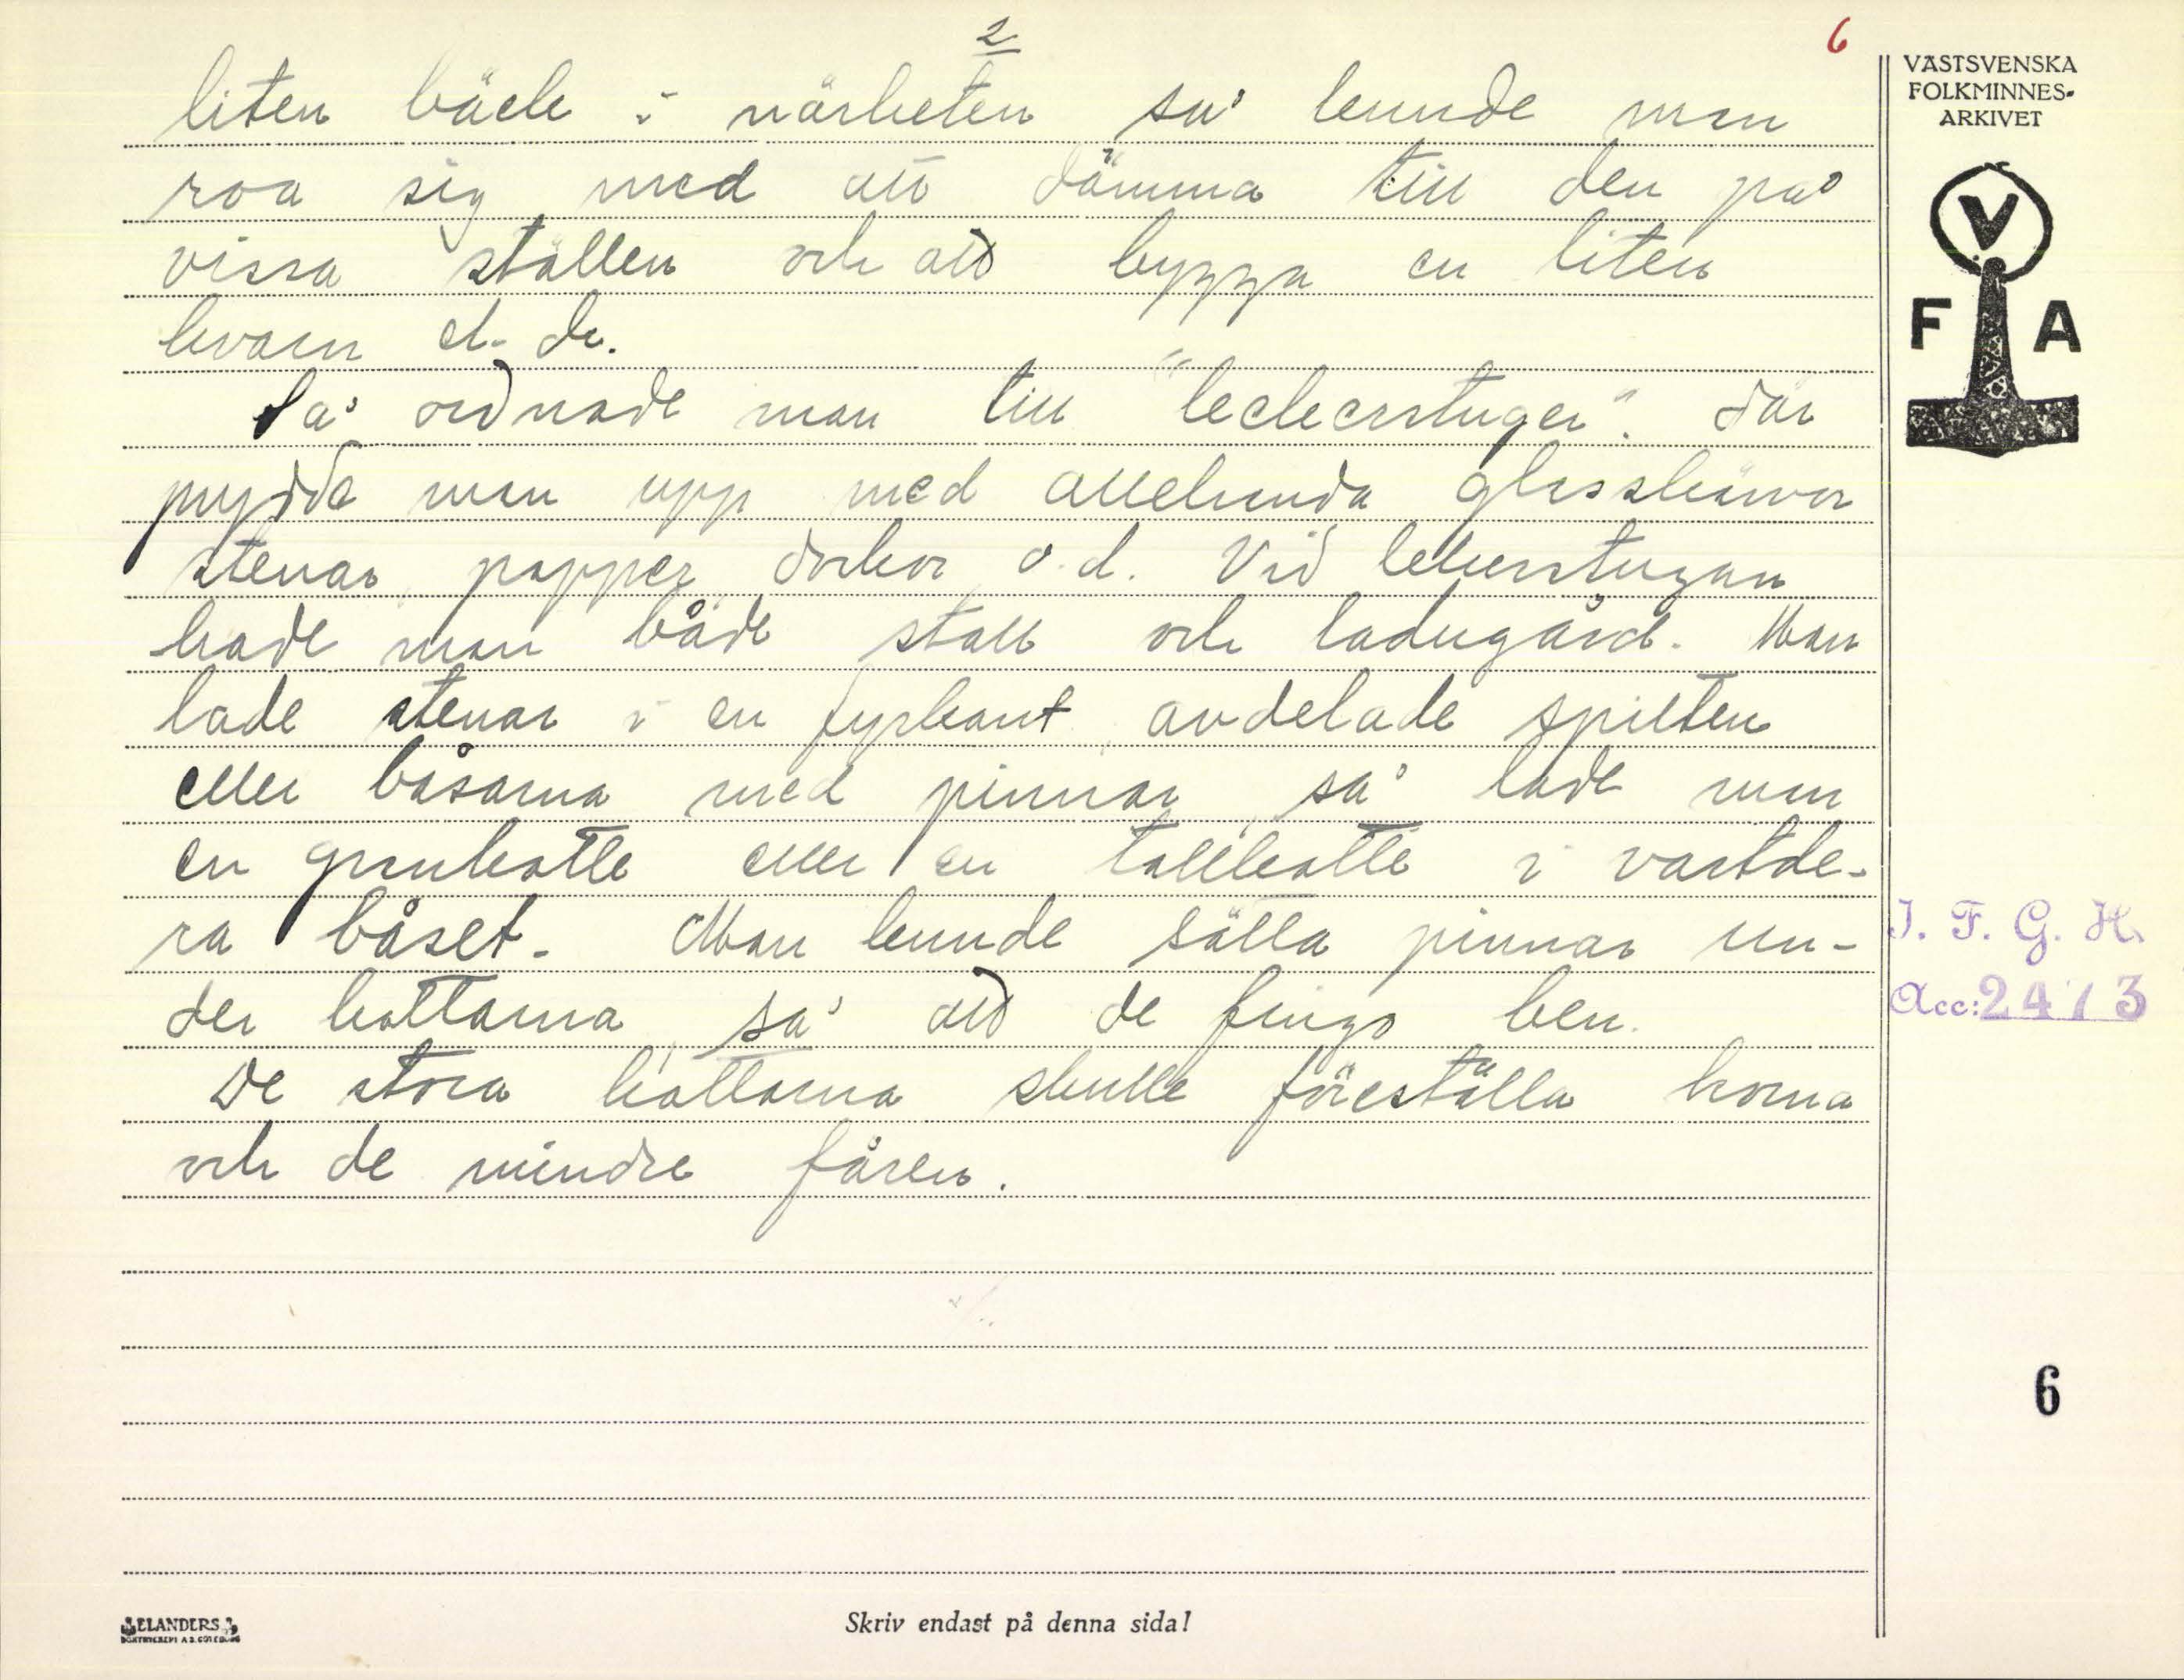 2
6
liten bäck i närheten så kunde man
roa sig med att dämma till den på
vissa ställen och att bygga en liten
kvarn el. dr.
Så ordnade man till "lekerstuger". där
prydde man upp med allehanda glasskärvor
stenar, papper, dockor o.d. Vid lekerstugan
hade man både stall och ladugård. Man
lade stenar i en fyrkant, avdelade spilten
eller båsarna med pinnar, så lade man
en grankotte eller en tallkotte i vartde-
ra båset. Man kunde sätta pinnar un-
der kottarna, så att de fingo ben.
De stora kottarna skulle föreställa korna
och de mindre fåren.
VÄSTSVENSKA
FOLKMINNES-
ARKIVET
V
F A
I. F. G. H.
Acc: 2473
6
ELANDERS
BOKTRYCKERI A.B. GÖTEBORG
Skriv endast på denna sida!